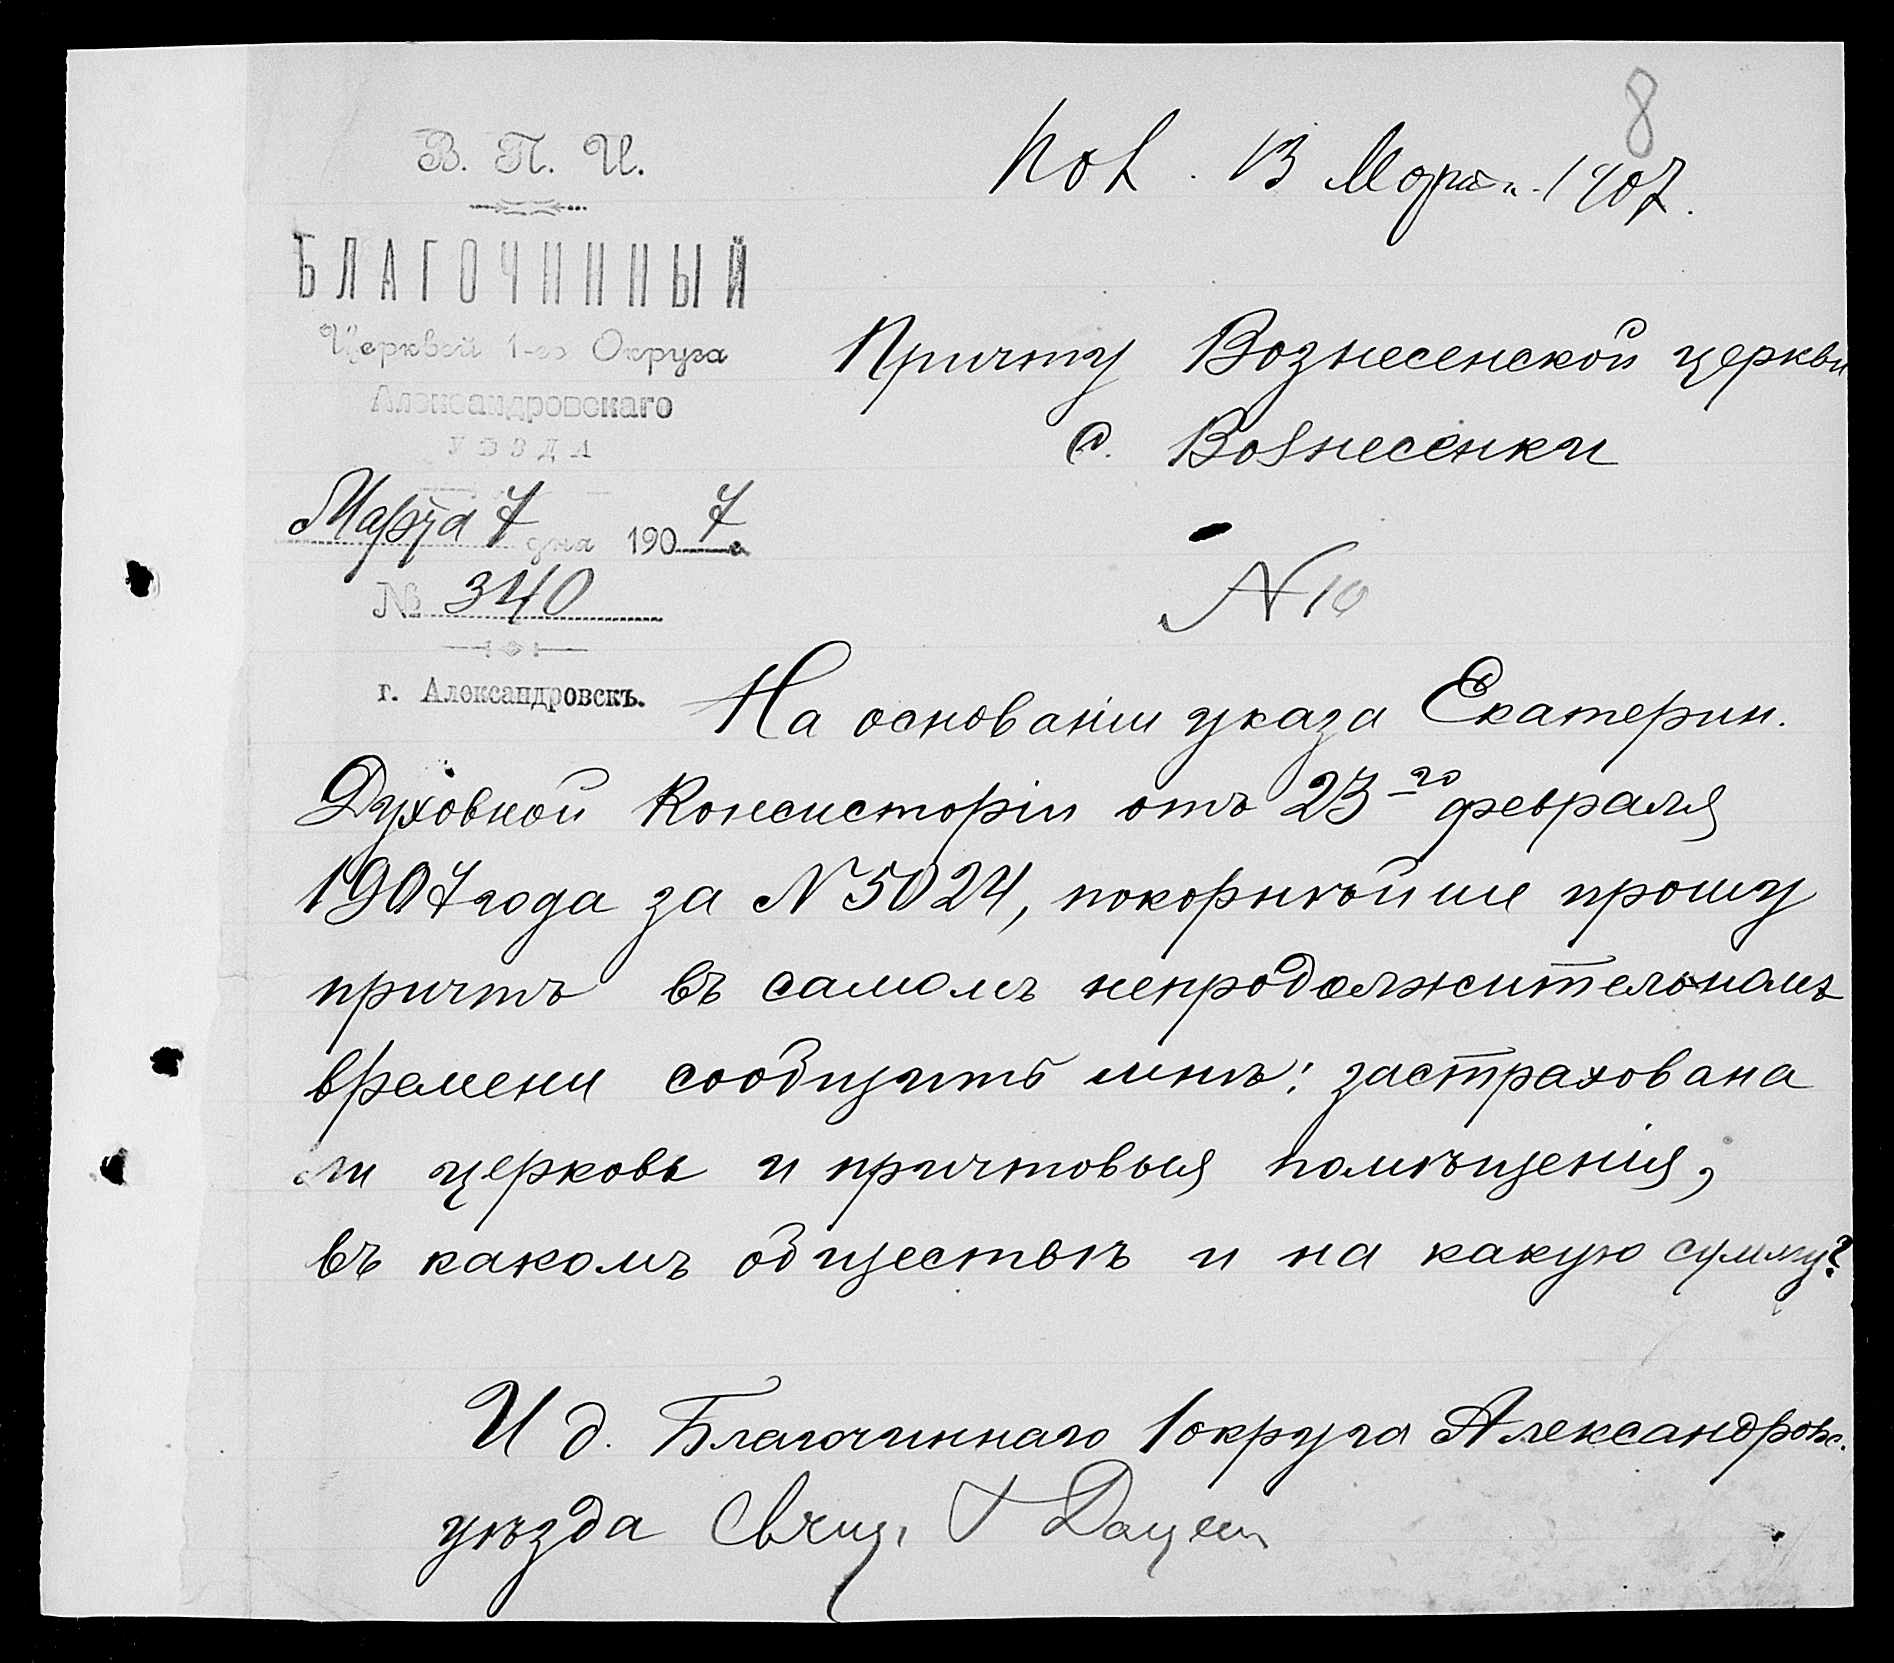 8
В. П. И.
13 Марта 1907.
БЛАГОЧИННЫЙ
Церквей 1-го Округа
Александровскаго
УѢЗДА
Марта 7 дня 1907 г.
№ 340
г. Александровскъ.
Причту Вознесенской церкви
с. Вознесенки
N 10
На основаніи указа Екатерин.
Духовной Консисторіи отъ 23-го февраля
1907 года за N 5024, покорнѣйше прошу
причтъ въ самомъ непродолжительномъ
времени сообщить мнѣ: застрахована
ли церковь и причтовыя помѣщенія,
въ какомъ обществѣ и на какую сумму?
И д. Благочиннаго 1 округа Александровс.
уѣзда Свящ.